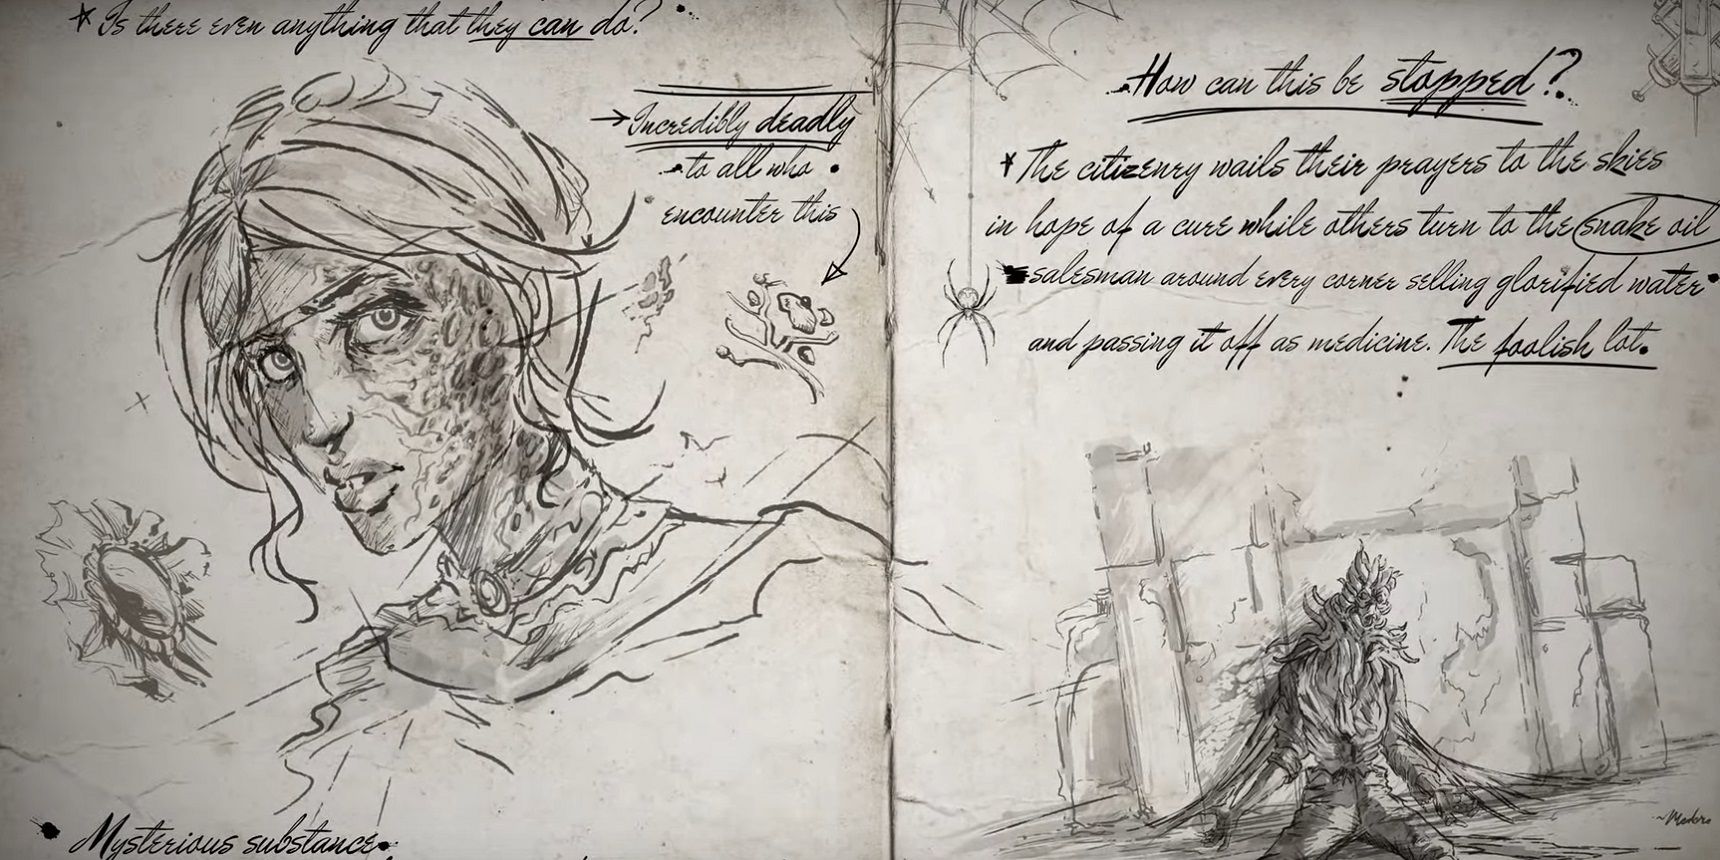 * Is there even anything that they can do?
→ Incredibly deadly
to all who
encounter this
Mysterious substance
How can this be stopped?
* The citizenry wails their prayers to the skies
in hope of a cure while others turn to the snake oil
salesman around every corner selling glorified water
and passing it off as medicine. The foolish lot.